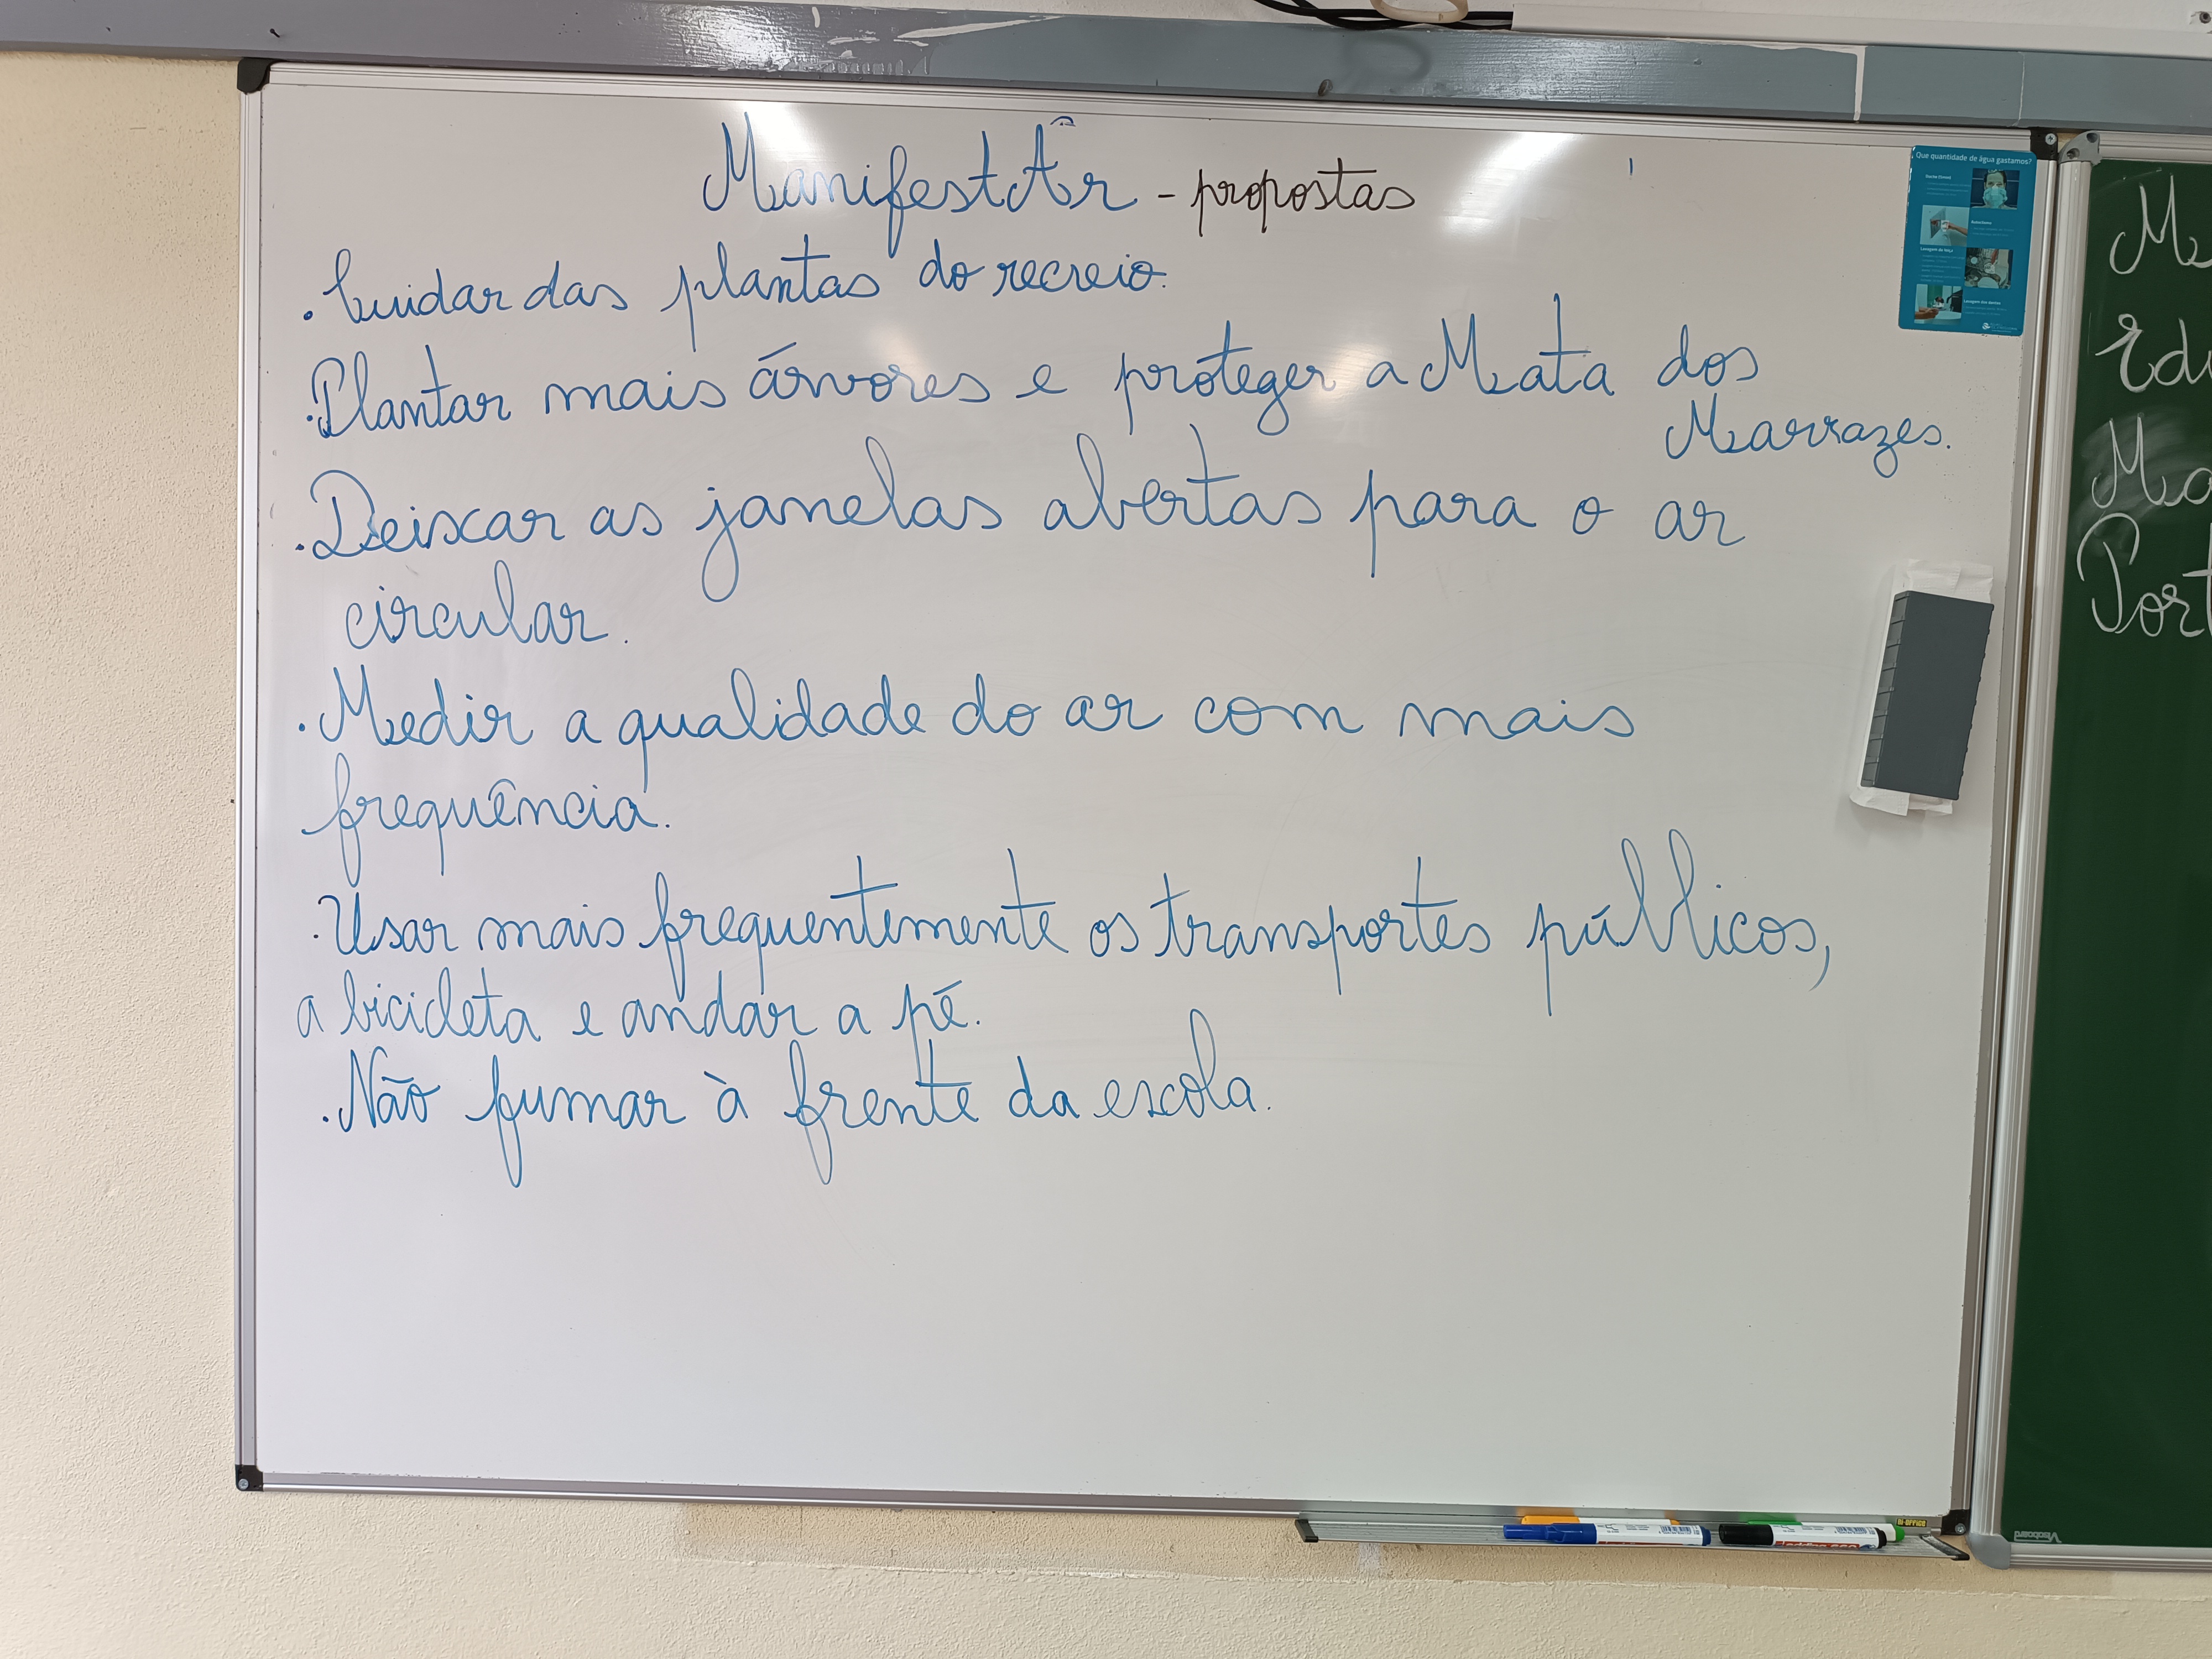 ManifestÂr - propostas
. Cuidar das plantas do recreio.
. Plantar mais árvores e proteger a Mata dos
Marrazes.
. Deixar as janelas abertas para o ar
circular.
. Medir a qualidade do ar com mais
frequência.
. Usar mais frequentemente os transportes públicos,
a bicicleta e andar a pé.
. Não fumar à frente da escola.
Que quantidade de água gastamos?
M
Edu
Ma
Port
Visoboard